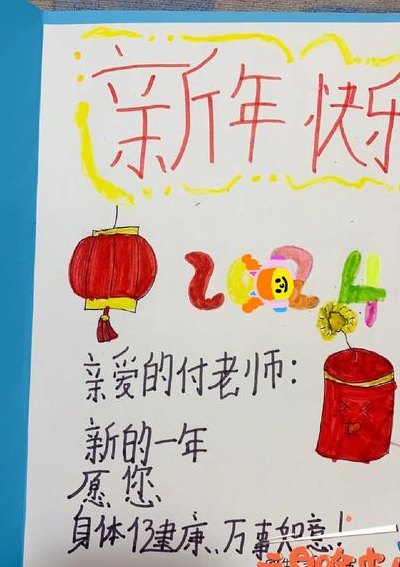 新年快乐
2024
亲爱的付老师：
新的一年
愿您
身体健康、万事如意！